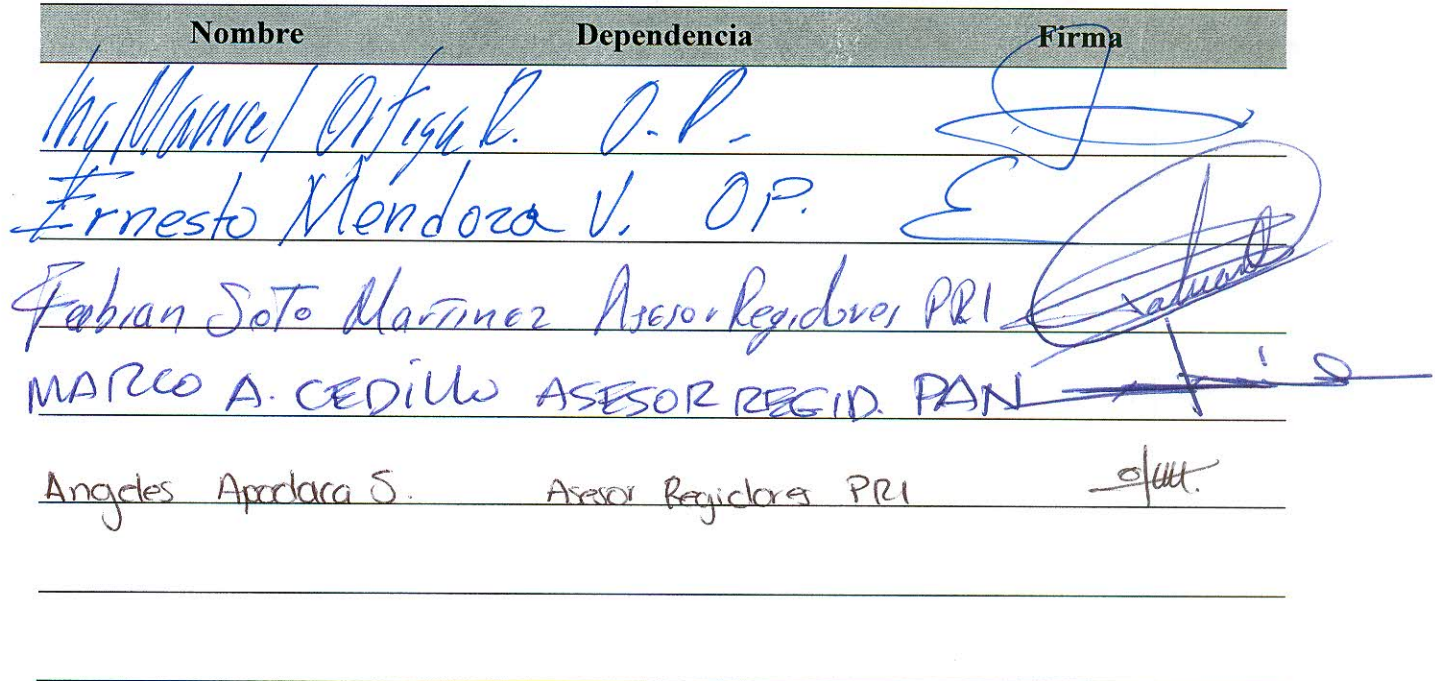 Nombre Dependencia Firma
Ing Manuel Ortega R. O.P.
Ernesto Mendoza V. OP.
Fabian Soto Martinez Asesor Regidores PRI
MARCO A. CEDILLO ASESOR REGID. PAN
Angeles Apodaca S. Asesor Regidores PRI